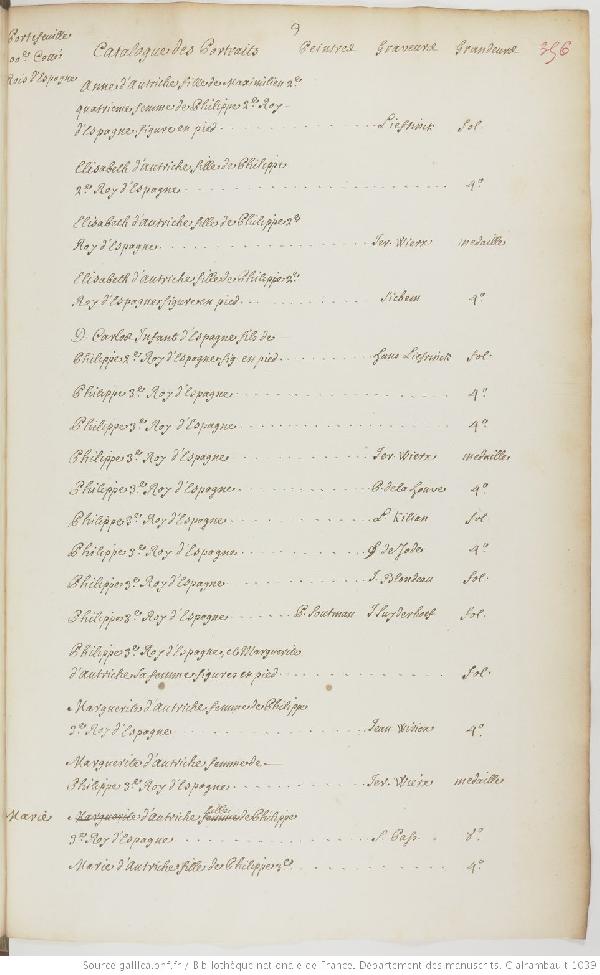 9
Portefeuille
Catalogue des Portraits Peintres Graveurs Grandeurs 356
Roys d'Espagne
Anne d'Autriche fille de Maximilien 2.e
quatrieme femme de Philippe 2.e Roy
d'Espagne figure en pied Liefrinck fol.
Elisabeth d'autriche fille de Philippe
2.e Roy d'Espagne 4.o
Elisabeth d'autriche fille de Philippe 2.e
Roy d'Espagne Jer. Wierx medaille
Elisabeth d'autriche fille de Philippe 2.e
Roy d'Espagne figure en pied Sichem 4.o
D. Carlos Infant d'Espagne fils de
Philippe 2.e Roy d'Espagne fig. en pied hans Liefrinck fol.
Philippe 3.e Roy d'Espagne 4.o
Philippe 3.e Roy d'Espagne 4.o
Philippe 3.e Roy d'Espagne Jer. Wierx medaille
Philippe 3.e Roy d'Espagne P. de la houve 4.o
Philippe 3.e Roy d'Espagne L. Kilian fol
Philippe 3.e Roy d'Espagne de Jode 4.o
Philippe 3.e Roy d'Espagne J. Blondeau fol.
Philippe 3.e Roy d'Espagne P. Soutman J. Suyderhoef fol.
Philippe 3.e Roy d'Espagne, et Marguerite
d'autriche sa femme figures en pied fol.
Marguerite d'autriche femme de Philippe
3.e Roy d'Espagne Jean Wierx 4.o
Marguerite d'autriche femme de
Philippe 3.e Roy d'Espagne Jer. Wierx medaille
Marie Marguerite d'autriche femme fille de Philippe
3.e Roy d'Espagne S. Pass. 8.o
Marie d'autriche fille de Philippe 3.e 4.o
Source gallica.bnf.fr / Bibliothèque nationale de France. Département des manuscrits. Clairambault 1039